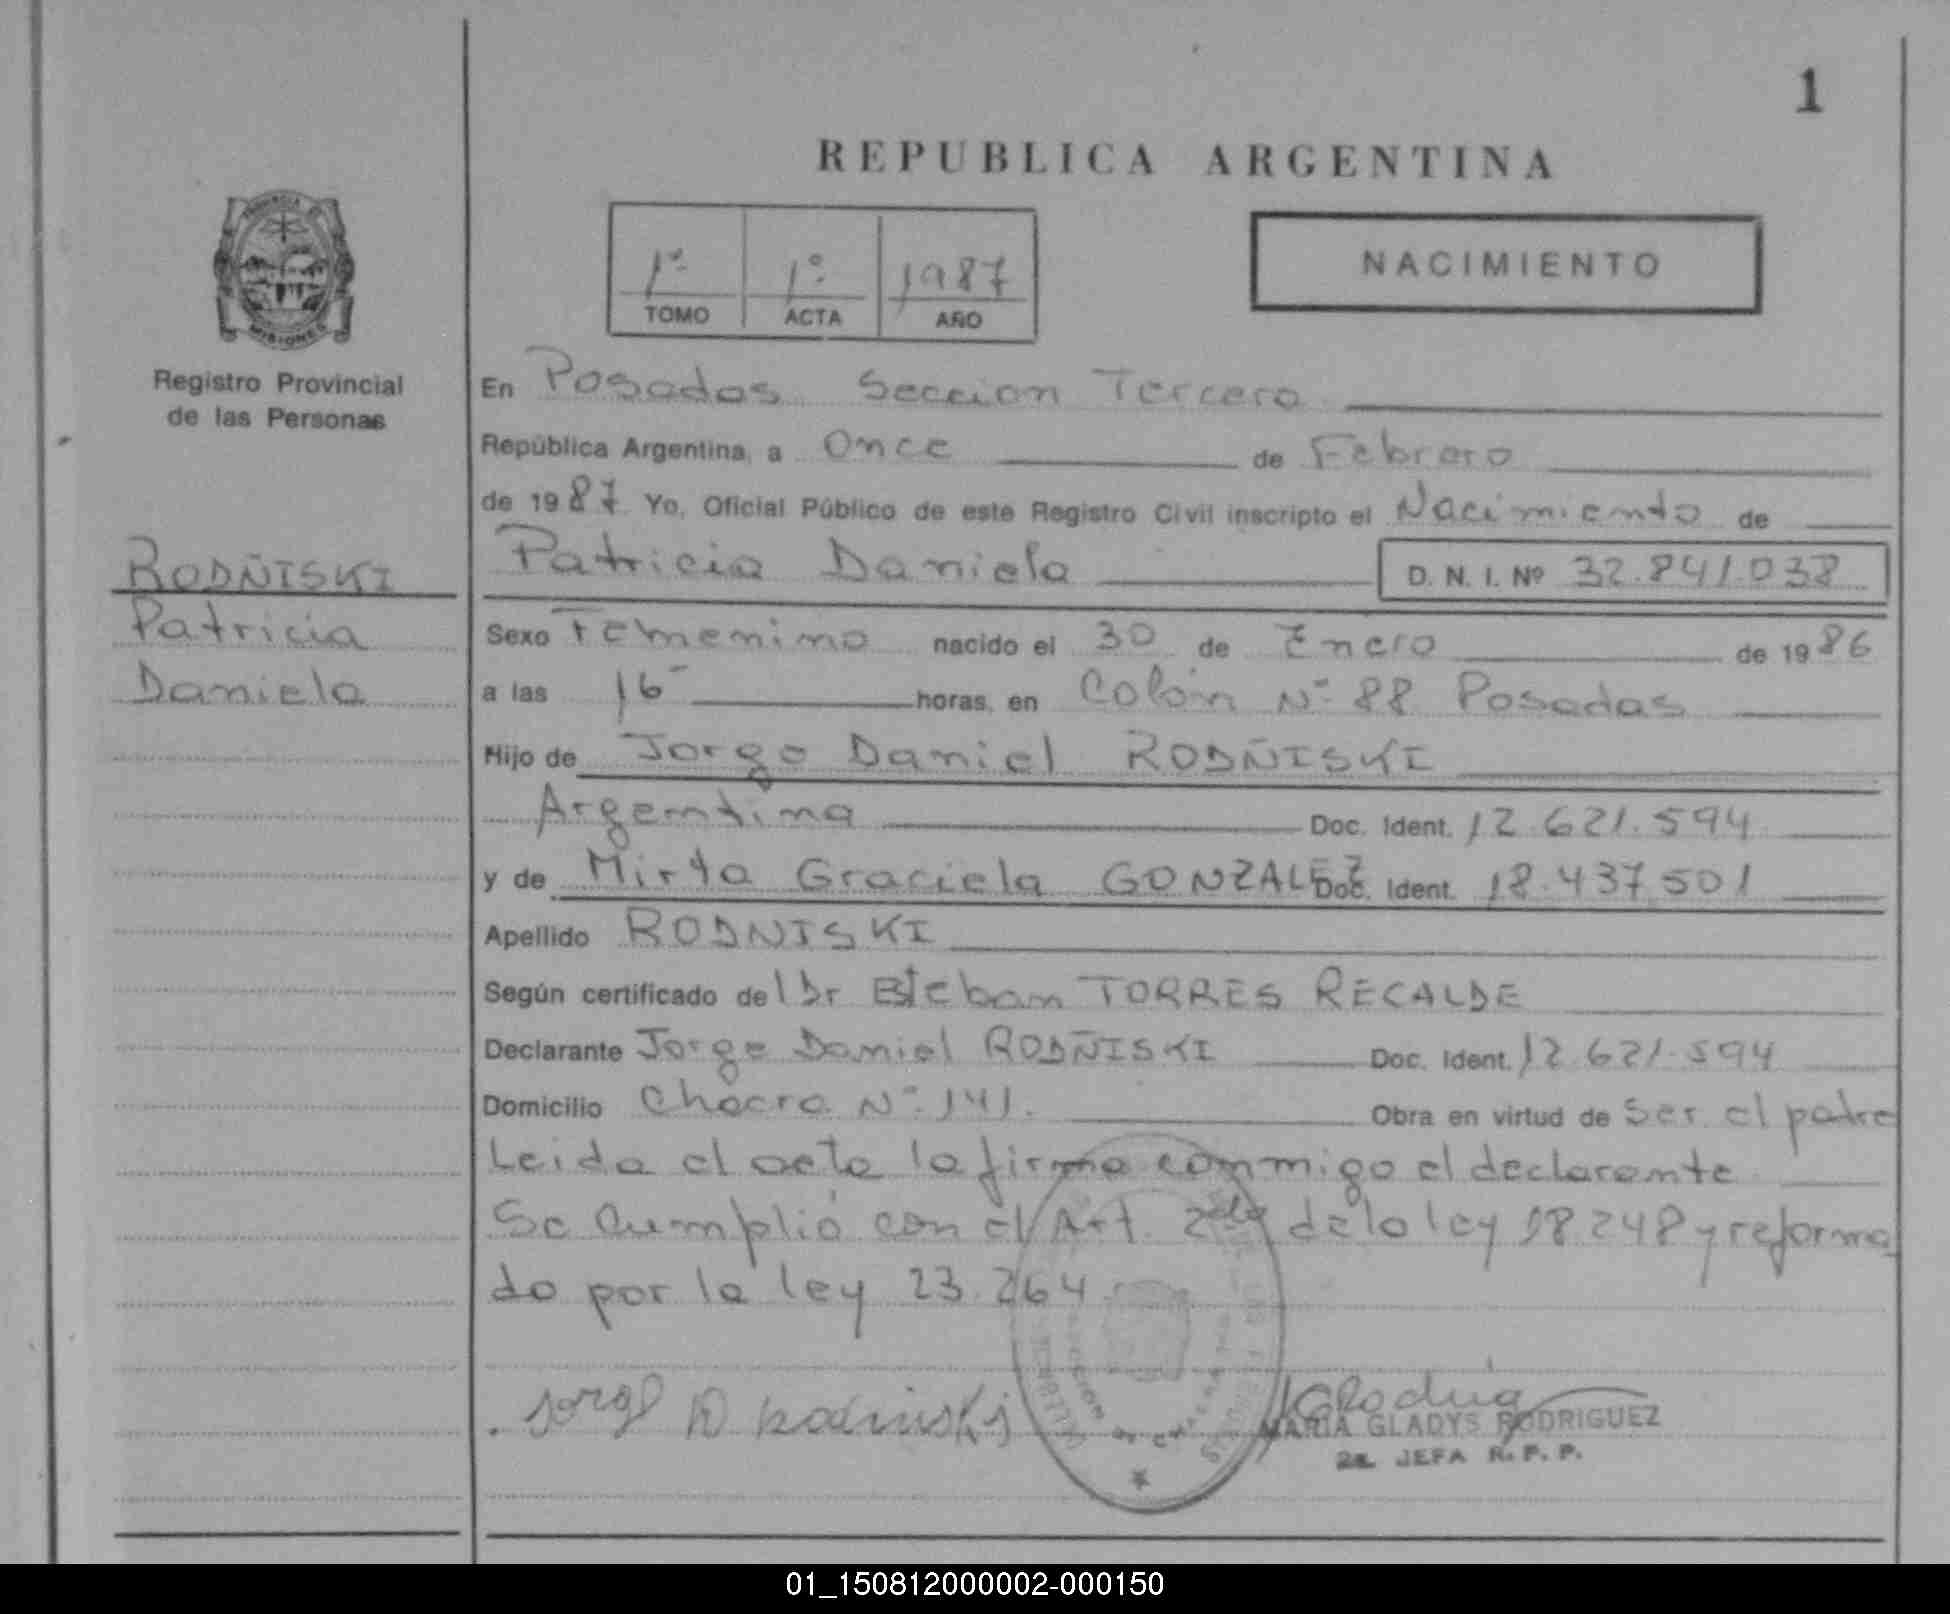 1
REPUBLICA ARGENTINA
1º 1º 1987
TOMO ACTA AÑO
NACIMIENTO
MISIONES
Registro Provincial
de las Personas
RODÑISKI
Patricia
Daniela
En Posadas Seccion Tercera
República Argentina, a Once de Febrero
de 1987 Yo, Oficial Público de este Registro Civil inscripto el Nacimiento de
Patricia Daniela D. N. I. Nº 32.841.038
Sexo Femenino nacido el 30 de Enero de 1986
a las 16 horas, en Colón Nº 88 Posadas
Hijo de Jorge Daniel RODÑISKI
Argentina Doc. Ident. 12.621.594
y de Mirta Graciela GONZALEZ Doc. Ident. 18.437.501
Apellido RODNISKI
Según certificado del Dr Esteban TORRES RECALDE
Declarante Jorge Daniel RODÑISKI Doc. Ident. 12.621.594
Domicilio Chacra Nº 141. Obra en virtud de Ser el padre
Leida el acta la firma conmigo el declarante
Se Cumplió con el Art. 2do de la ley 18248 y reforma
do por la ley 23.264.
Jorge D Rodniski
MARIA GLADYS RODRIGUEZ
2a. JEFA R. P. P.
01_150812000002-000150